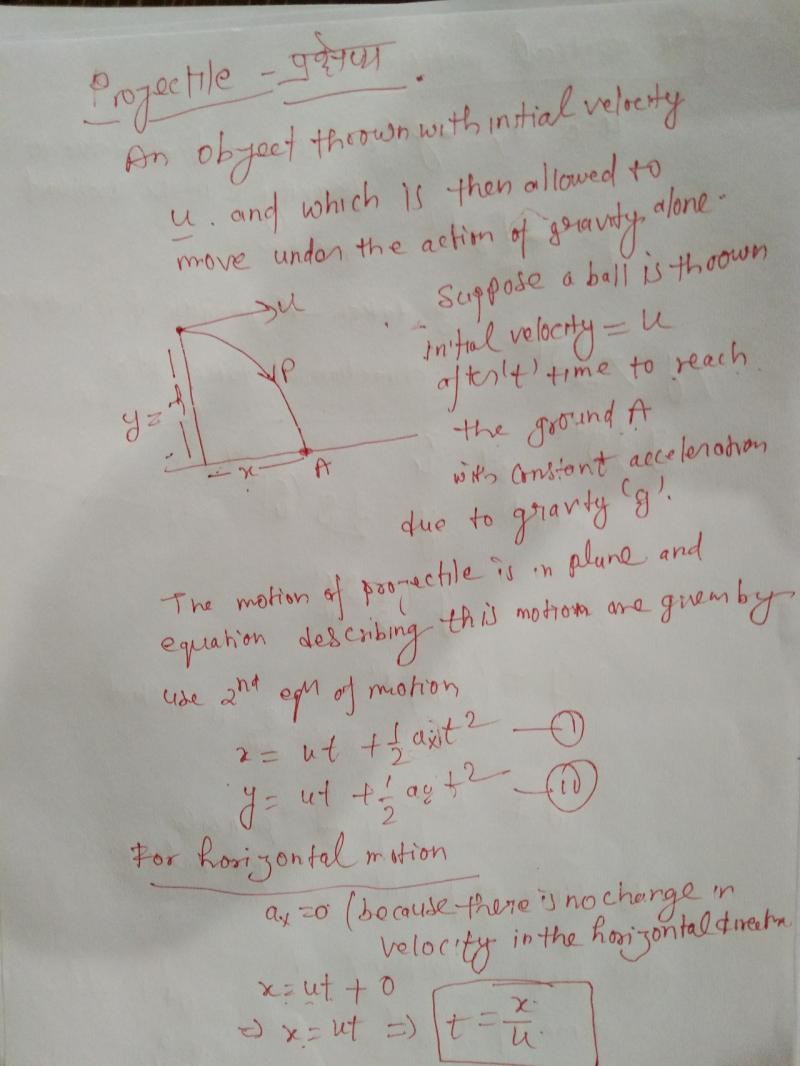 Projectile - प्रक्षेप्य.
An object thrown with initial velocity
u. and which is then allowed to
move under the action of gravity alone.
Suppose a ball is thrown
initial velocity = u
after 't' time to reach
the ground A
with constant acceleration
due to gravity 'g'.
u
P
y = h
x
A
The motion of projectile is in plane and
equation describing this motion are given by
use 2nd eqn of motion
x = ut + 1/2 axt² — (i)
y = ut + 1/2 ay t² — (ii)
For horizontal motion
ax = 0 (because there is no change in
velocity in the horizontal direction
x = ut + 0
⇒ x = ut ⇒ t = x/u